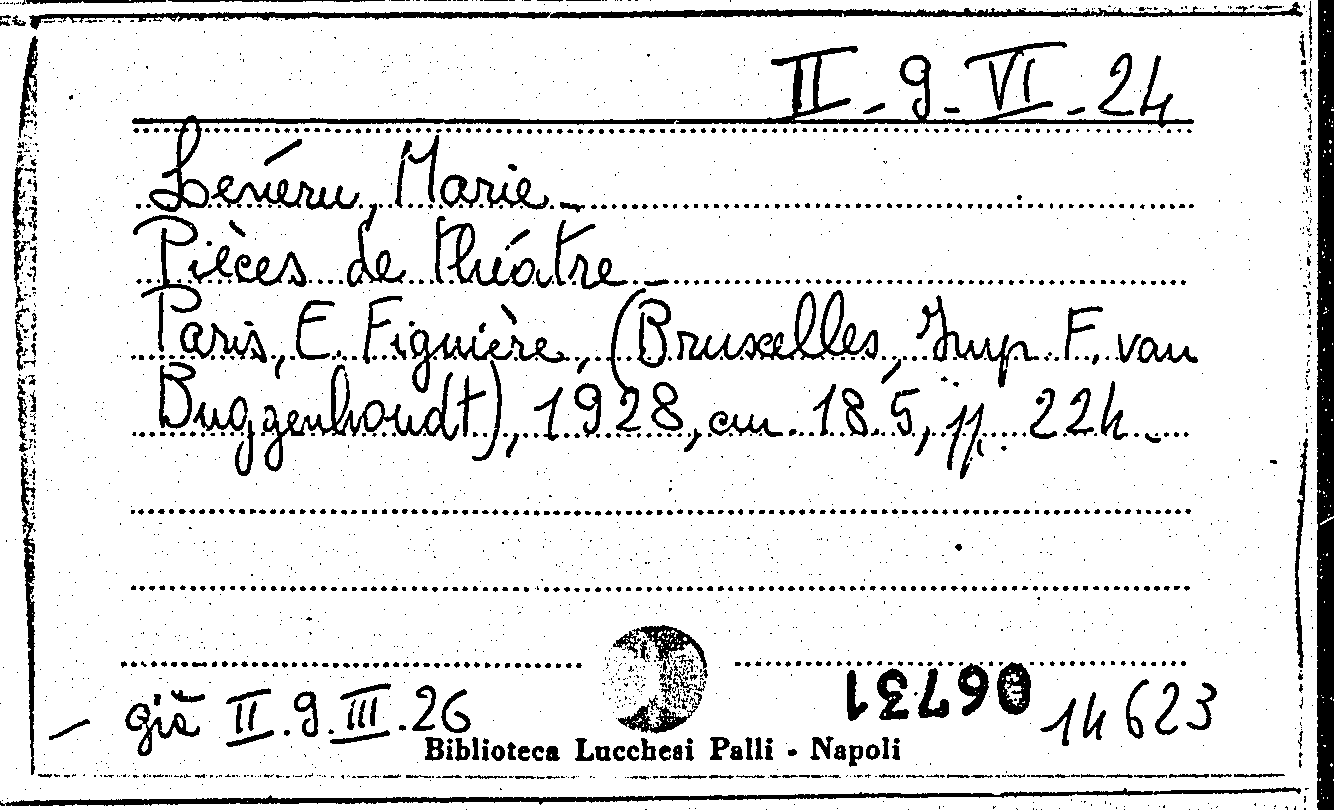 II-9-VI-24
Lenéru, Marie -
Pièces de théatre -
Paris, E. Figuière, (Bruxelles, Imp. F. van
Buggenhoudt), 1928, cm. 18.5, pp. 224 -
06731
14623
- già II.9.III.26
Biblioteca Lucchesi Palli - Napoli